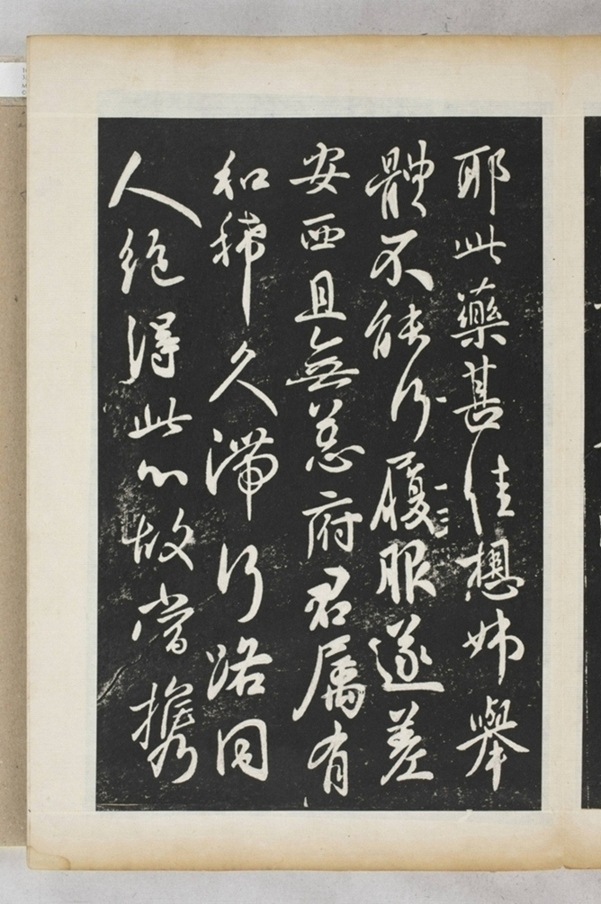 耶此藥甚佳想姊舉
體不能行履服遂差
安西且無恙府君属有
和稀久滯行洛同
人絶得此心故當攜